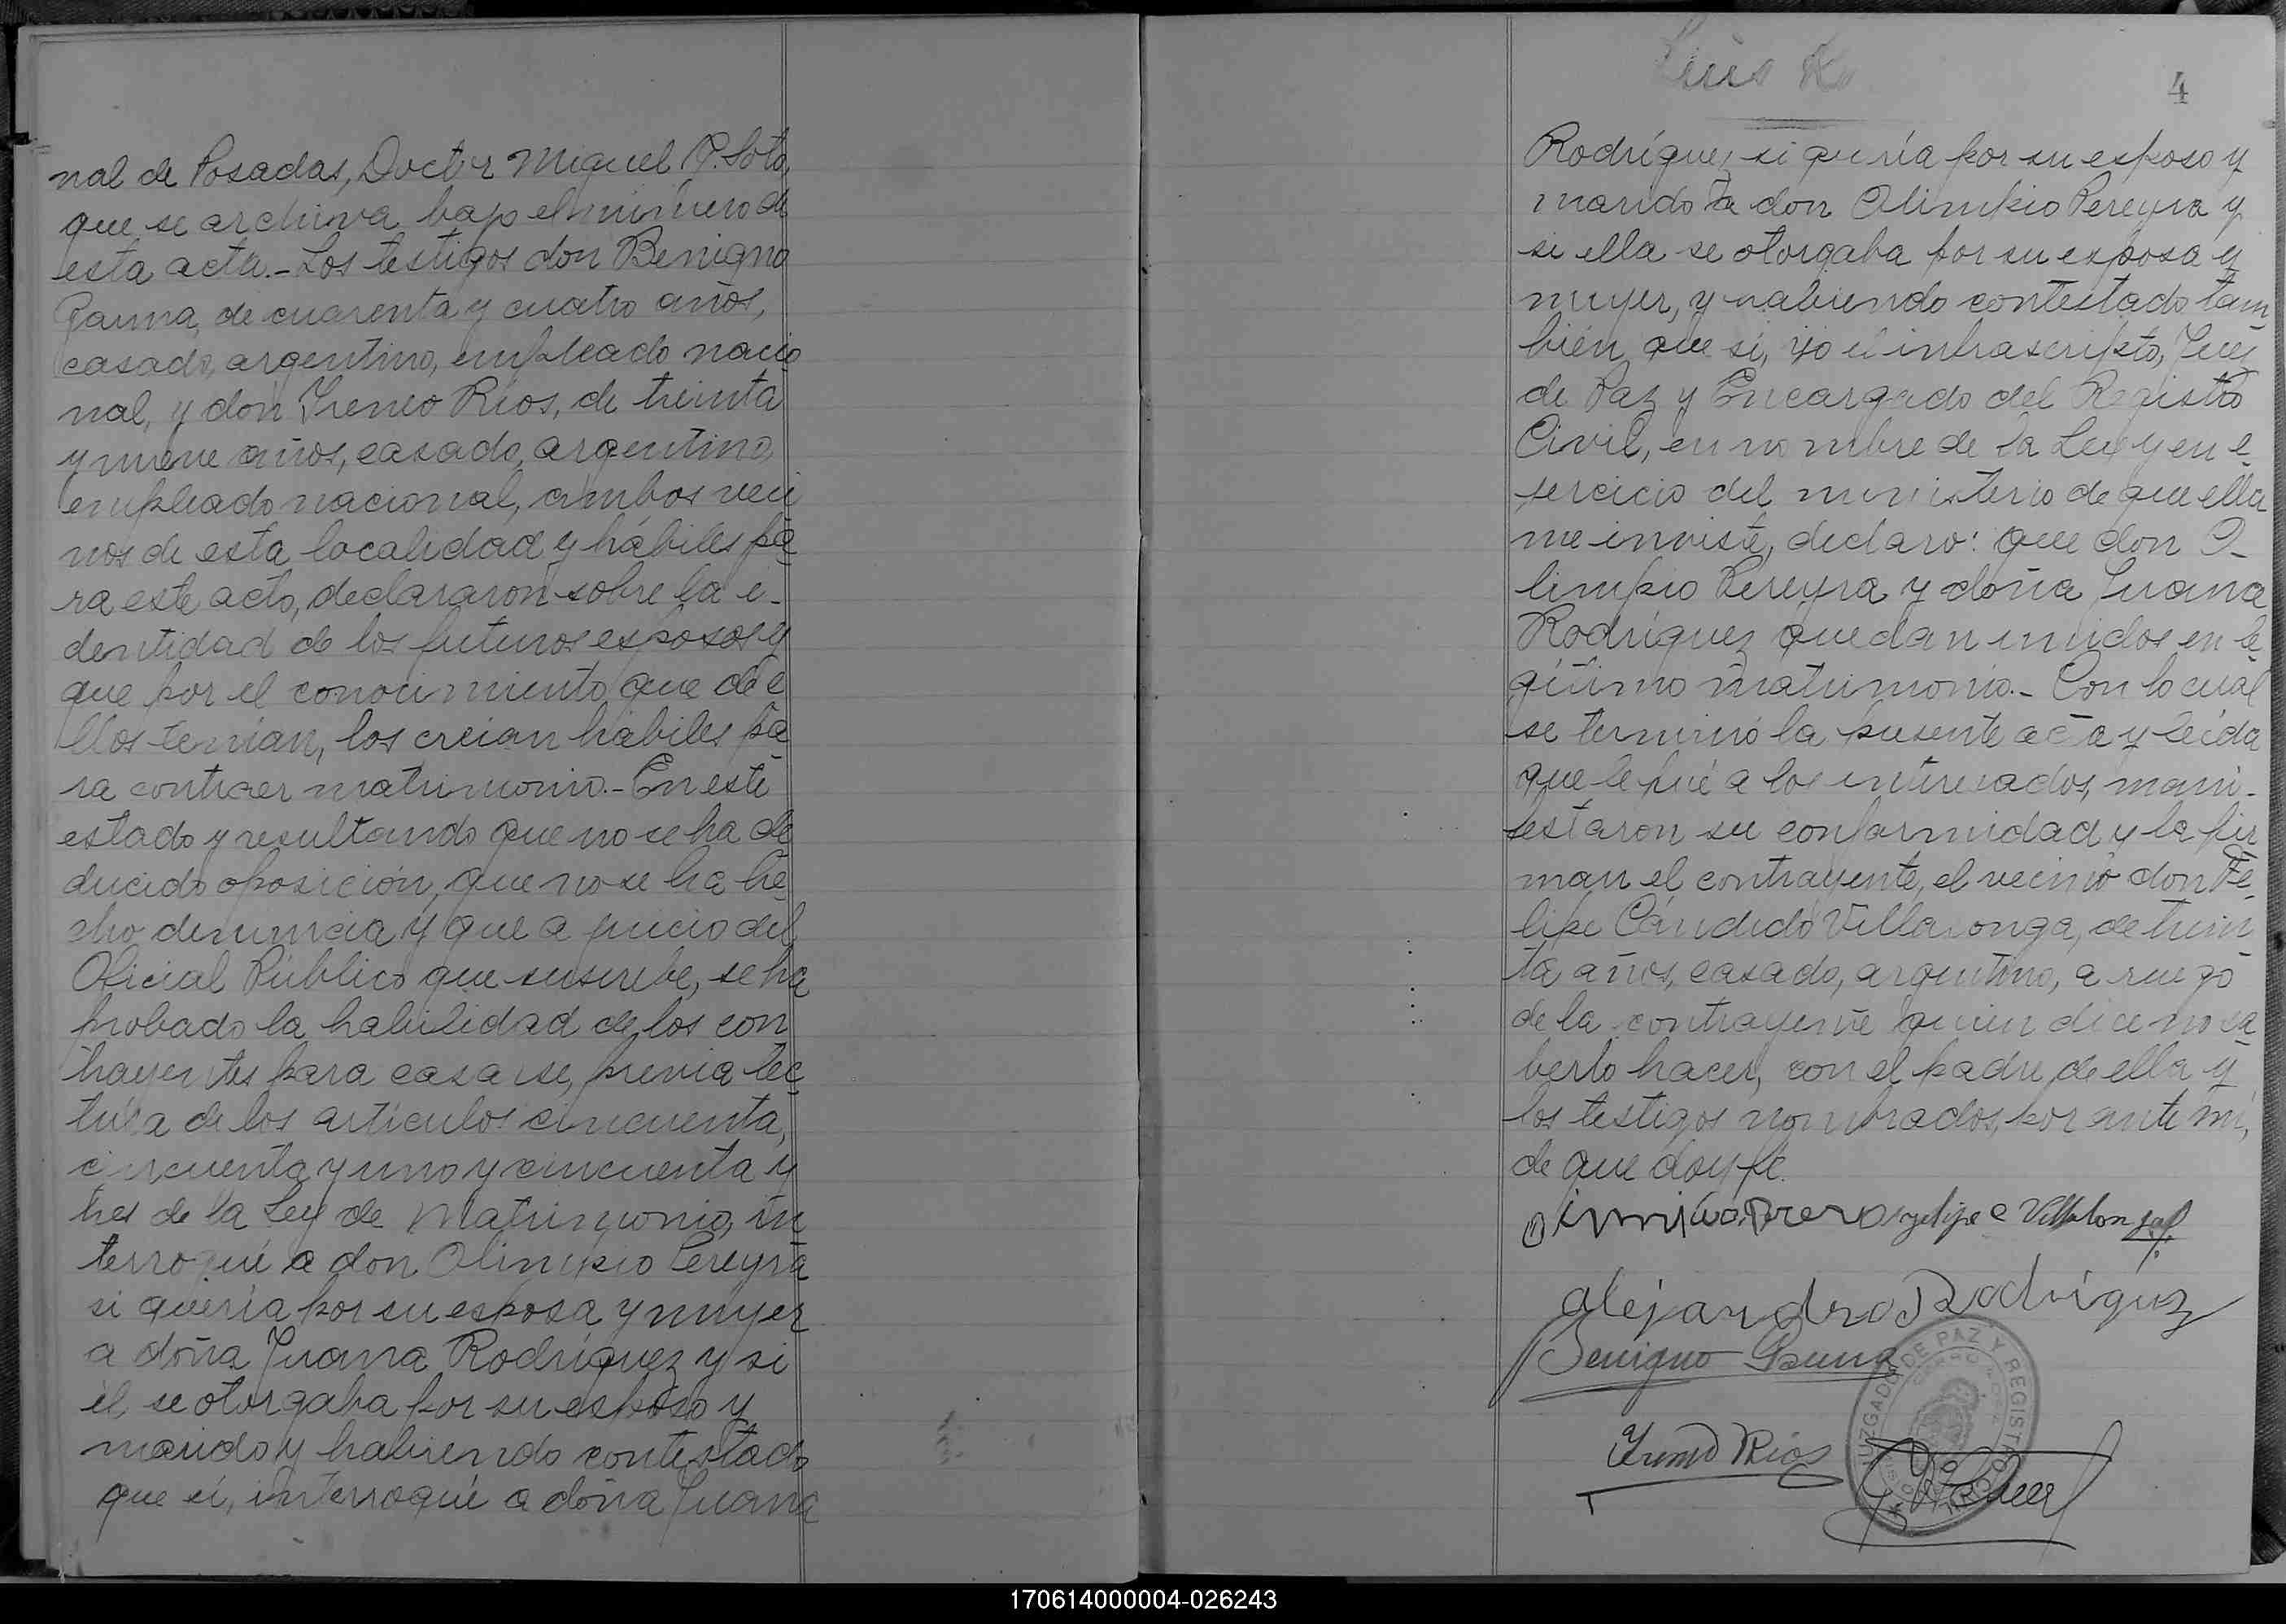 nal de Posadas, Doctor Miguel P. Soto,
que se archiva bajo el número de
esta acta.- Los testigos don Benigno
Gauna, de cuarenta y cuatro años,
casado, argentino, empleado nacio
nal, y don Ireneo Ríos, de treinta
y nueve años, casado, argentino,
empleado nacional, ambos veci
nos de esta localidad y hábiles pa
ra este acto, declararon sobre la i-
dentidad de los futuros esposos y
que por el conocimiento que de e
llos tenían, los creían hábiles pa
ra contraer matrimonio.- En este
estado y resultando que no se ha de
ducido oposición, que no se ha he
cho denuncia y que a juicio del
Oficial Público que suscribe, se ha
probado la habilidad de los con
trayentes para casarse, previa lec
tura de los artículos cincuenta,
cincuenta y uno y cincuenta y
tres de la Ley de Matrimonio, in
terrogué a don Olimpio Pereyra
si quería por su esposa y mujer
a doña Juana Rodríguez y si
él se otorgaba por su esposo y
marido y habiendo contestado
que sí, interrogué a doña Juana
Luis
4
Rodríguez si quería por su esposo y
marido a don Olimpio Pereyra y
si ella se otorgaba por su esposa y
mujer, y habiendo contestado tam
bién que sí, yo el infrascripto, Juez
de Paz y Encargado del Registro
Civil, en nombre de la Ley y en e
jercicio del ministerio de que ella
me inviste, declaro: que don O-
limpio Pereyra y doña Juana
Rodríguez quedan unidos en le
gítimo matrimonio.- Con lo cual
se terminó la presente acta y leída
que le fué a los interesados, mani-
festaron su conformidad y la fir
man el contrayente, el vecino don Fe
lipe Cándido Villalonga, de trein
ta años, casado, argentino, a ruego
de la contrayente quien dice no sa
berlo hacer, con el padre de ella y
los testigos nombrados, por ante mí,
de que doy fé.
Felipe C Villalonga
Alejandro Rodríguez
Benigno Gauna
JUZGADO DE PAZ Y REGISTRO CIVIL
Ireneo Ríos
170614000004-026243